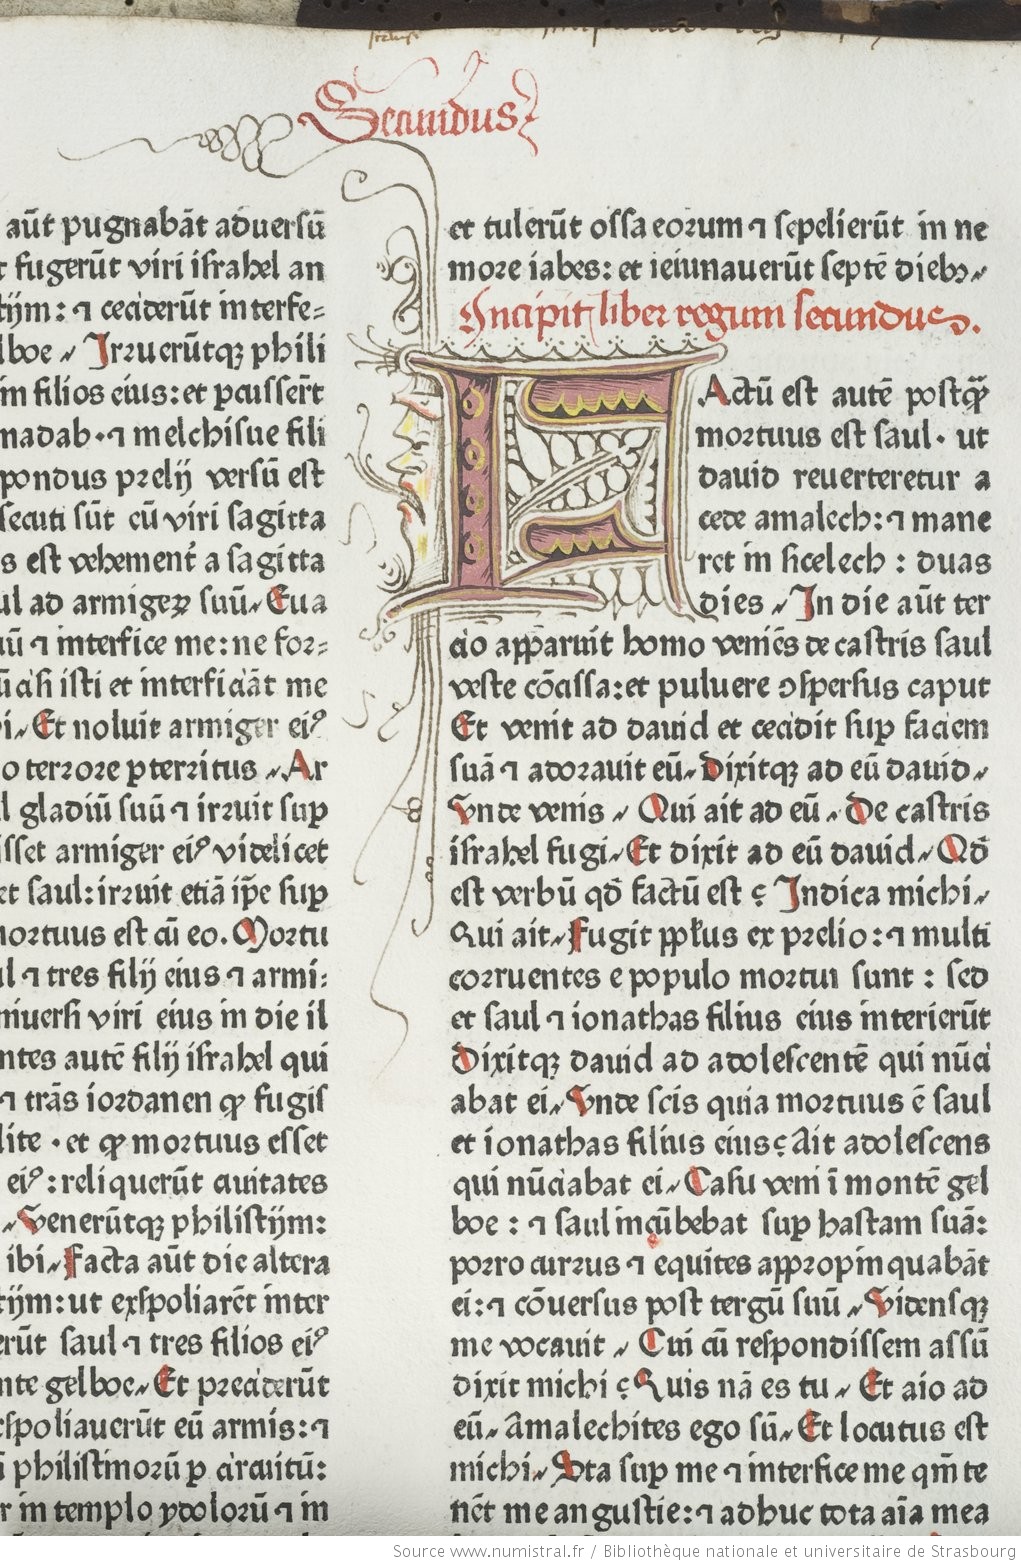 Secundus
aūt pugnabāt aduersū
fugerūt viri israhel an
tijm: ⁊ ceciderūt interfe=
lboe Irruerūtqꝫ phili
in filios eius: et ꝑcusser̄t
nadab · ⁊ melchisue fili
pondus prelij versū est
secuti sūt cū viri sagitta
s est vehement̄ a sagitta
ul ad armigeꝝ suū Eua
uū ⁊ interfice me: ne for=
isti et interficiāt me
i Et noluit armiger eiꝰ
o terrore ꝑterritus Ar
l gladiū suū ⁊ irruit suꝑ
sset armiger eiꝰ videlicet
et saul: irruit etiā ip̄e suꝑ
mortuus est cū eo. Mortu
ul ⁊ tres filij eius ⁊ armi:
niuersi viri eius in die il
ntes autē filij israhel qui
⁊ trās iordanen ꝙ fugis
lite · et ꝙ mortuus esset
eiꝰ: reliquerūt ciuitates
Venerūtqꝫ philistijm:
ibi Facta aūt die altera
tijm: ut exspoliarēt inter
erūt saul ⁊ tres filios eiꝰ
nte gelboe Et preciderūt
espoliauerūt eū armis: ⁊
ā philistinorū ꝑ circuitū:
r in templo ydolorū ⁊ in
et tulerūt ossa eorum ⁊ sepelierūt in ne
more iabes: et ieiunauerūt septē diebꝫ
Incipit liber regum secundus.
FActū est autē postqᷓ
mortuus est saul · ut
dauid reuerteretur a
cede amalech: ⁊ mane
ret in sicelech : duas
dies In die aūt ter
cio apparuit homo veniēs de castris saul
veste cōcissa: et puluere ɔspersus caput
Et venit ad dauid et cecidit suꝑ faciem
suā ⁊ adorauit eū Dixitqꝫ ad eū dauid
Vnde venis Qui ait ad eū De castris
israhel fugi Et dixit ad eū dauid Qd̄
est verbū qd̄ factū est ? Indica michi
Qui ait Fugit pp̄lus ex prelio: ⁊ multi
corruentes e populo mortui sunt : sed
et saul ⁊ ionathas filius eius interierūt
Dixitqꝫ dauid ad adolescentē qui nūci
abat ei Vnde scis quia mortuus ē saul
et ionathas filius eius? Ait adolescens
qui nūciabat ei Casu veni ī montē gel
boe : ⁊ saul incūbebat suꝑ hastam suā:
porro currus ⁊ equites appropinquabāt
ei: ⁊ cōuersus post tergū suū Vidensqꝫ
me vocauit Cui cū respondissem assū
dixit michi ? Quis nā es tu Et aio ad
eū Amalechites ego sū Et locutus est
michi Sta suꝑ me ⁊ interfice me qm̄ te
nēt me angustie: ⁊ adhuc tota aīa mea
Source www.numistral.fr / Bibliothèque nationale et universitaire de Strasbourg